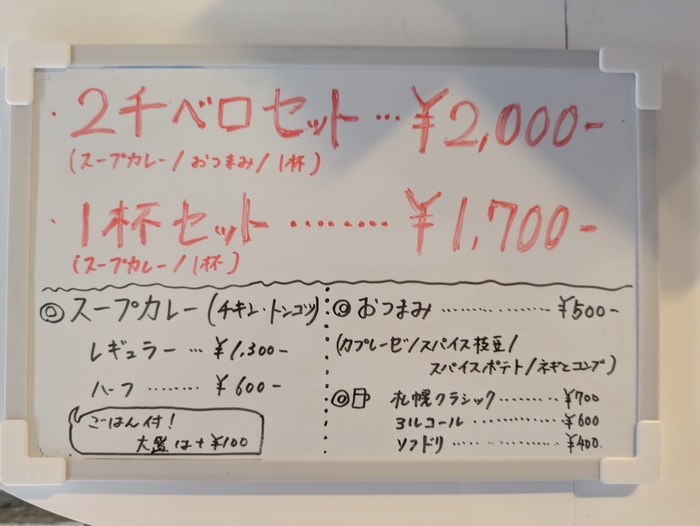 ・2千ベロセット…¥2,000-
(スープカレー/おつまみ/1杯)
・1杯セット………¥1,700-
(スープカレー/1杯)
◎スープカレー(チキン・トンコツ)
レギュラー…¥1,300-
ハーフ………¥600-
ごはん付!
大盛は+¥100
◎おつまみ……………¥500-
(カプレーゼ/スパイス枝豆/
スパイスポテト/ネギとコンブ)
◎
札幌クラシック………¥700
ヨルコール……………¥600
ソフドリ………………¥400